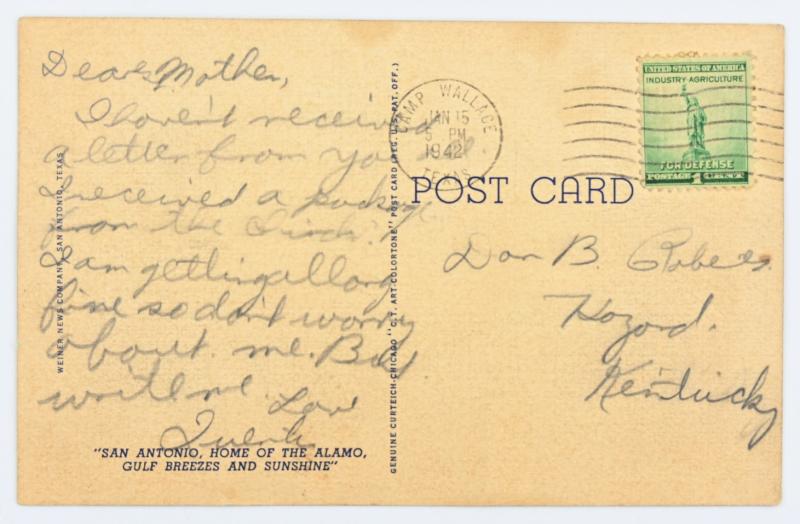 Dear Mother,
I haven't received
a letter from you
I received a package
from the
I am getting allong
fine so don't worry
about me. But
write me. Love
"SAN ANTONIO, HOME OF THE ALAMO,
GULF BREEZES AND SUNSHINE"
WEINER NEWS COMPANY, SAN ANTONIO, TEXAS
GENUINE CURTEICH-CHICAGO "C.T. ART-COLORTONE" POST CARD (REG. U.S. PAT. OFF.)
CAMP WALLACE
JAN 15
5 PM
1942
TEXAS
UNITED STATES OF AMERICA
INDUSTRY·AGRICULTURE
FOR DEFENSE
POSTAGE 1 CENT
POST CARD
Dan B
Hazard.
Kentucky